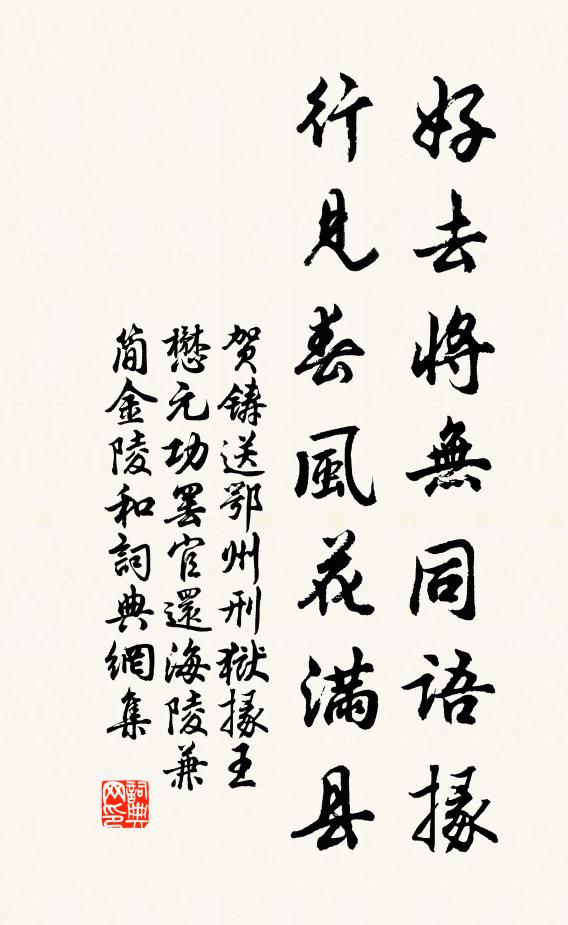 好去將無同語掾
行見春風花滿县
贺鑄送鄂州刑獄掾王
懋元功罢官還海陵兼
简金陵和詞典網集
詞典网印